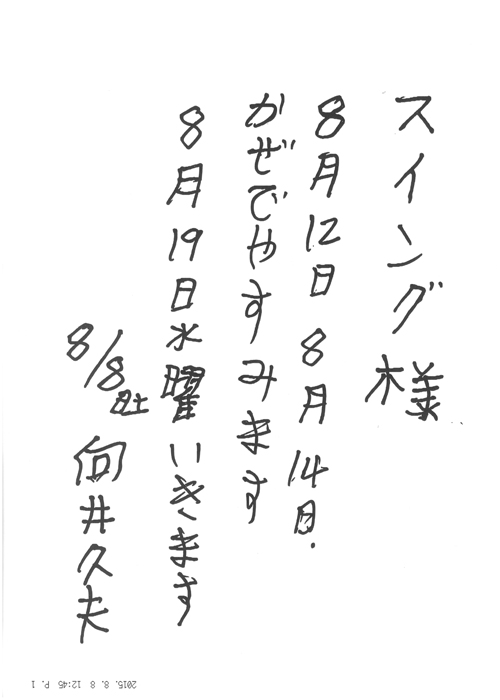 スイング様
8月12日 8月14日.
かぜでやすみます
8月19日水曜いきます
8/8 土 向井久夫
2015. 8. 8 12:45 P. 1